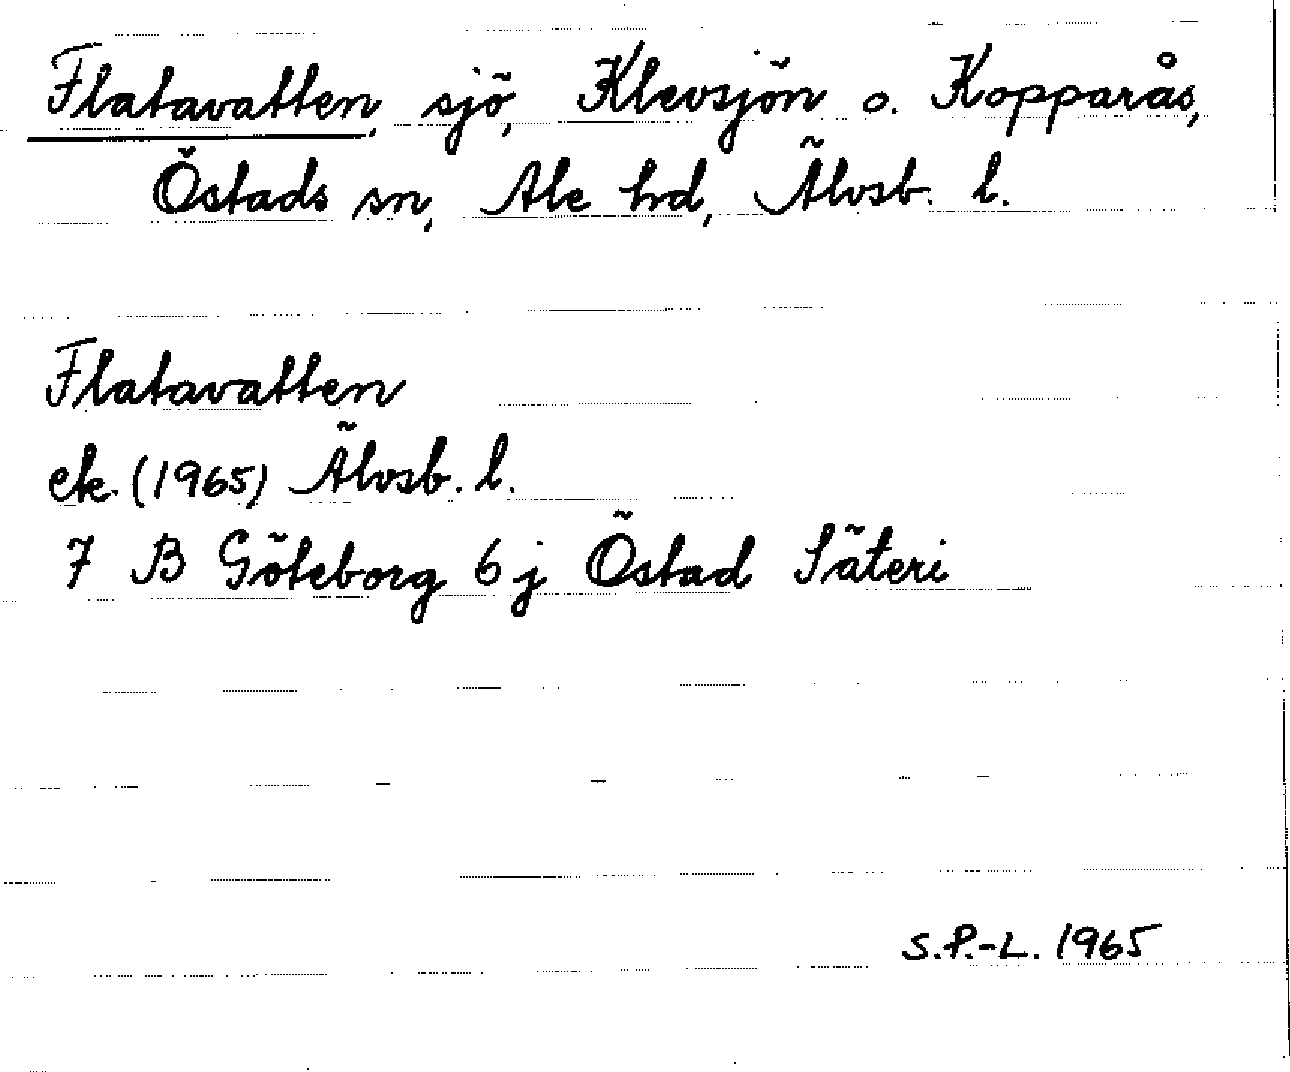 Flatavatten, sjö, Klevsjön o. Kopparås,
Östads sn, Ale hd, Älvsb. l.
Flatavatten
ek. (1965) Älvsb. l.
7 B Göteborg 6 j Östad Säteri
S.P.-L. 1965